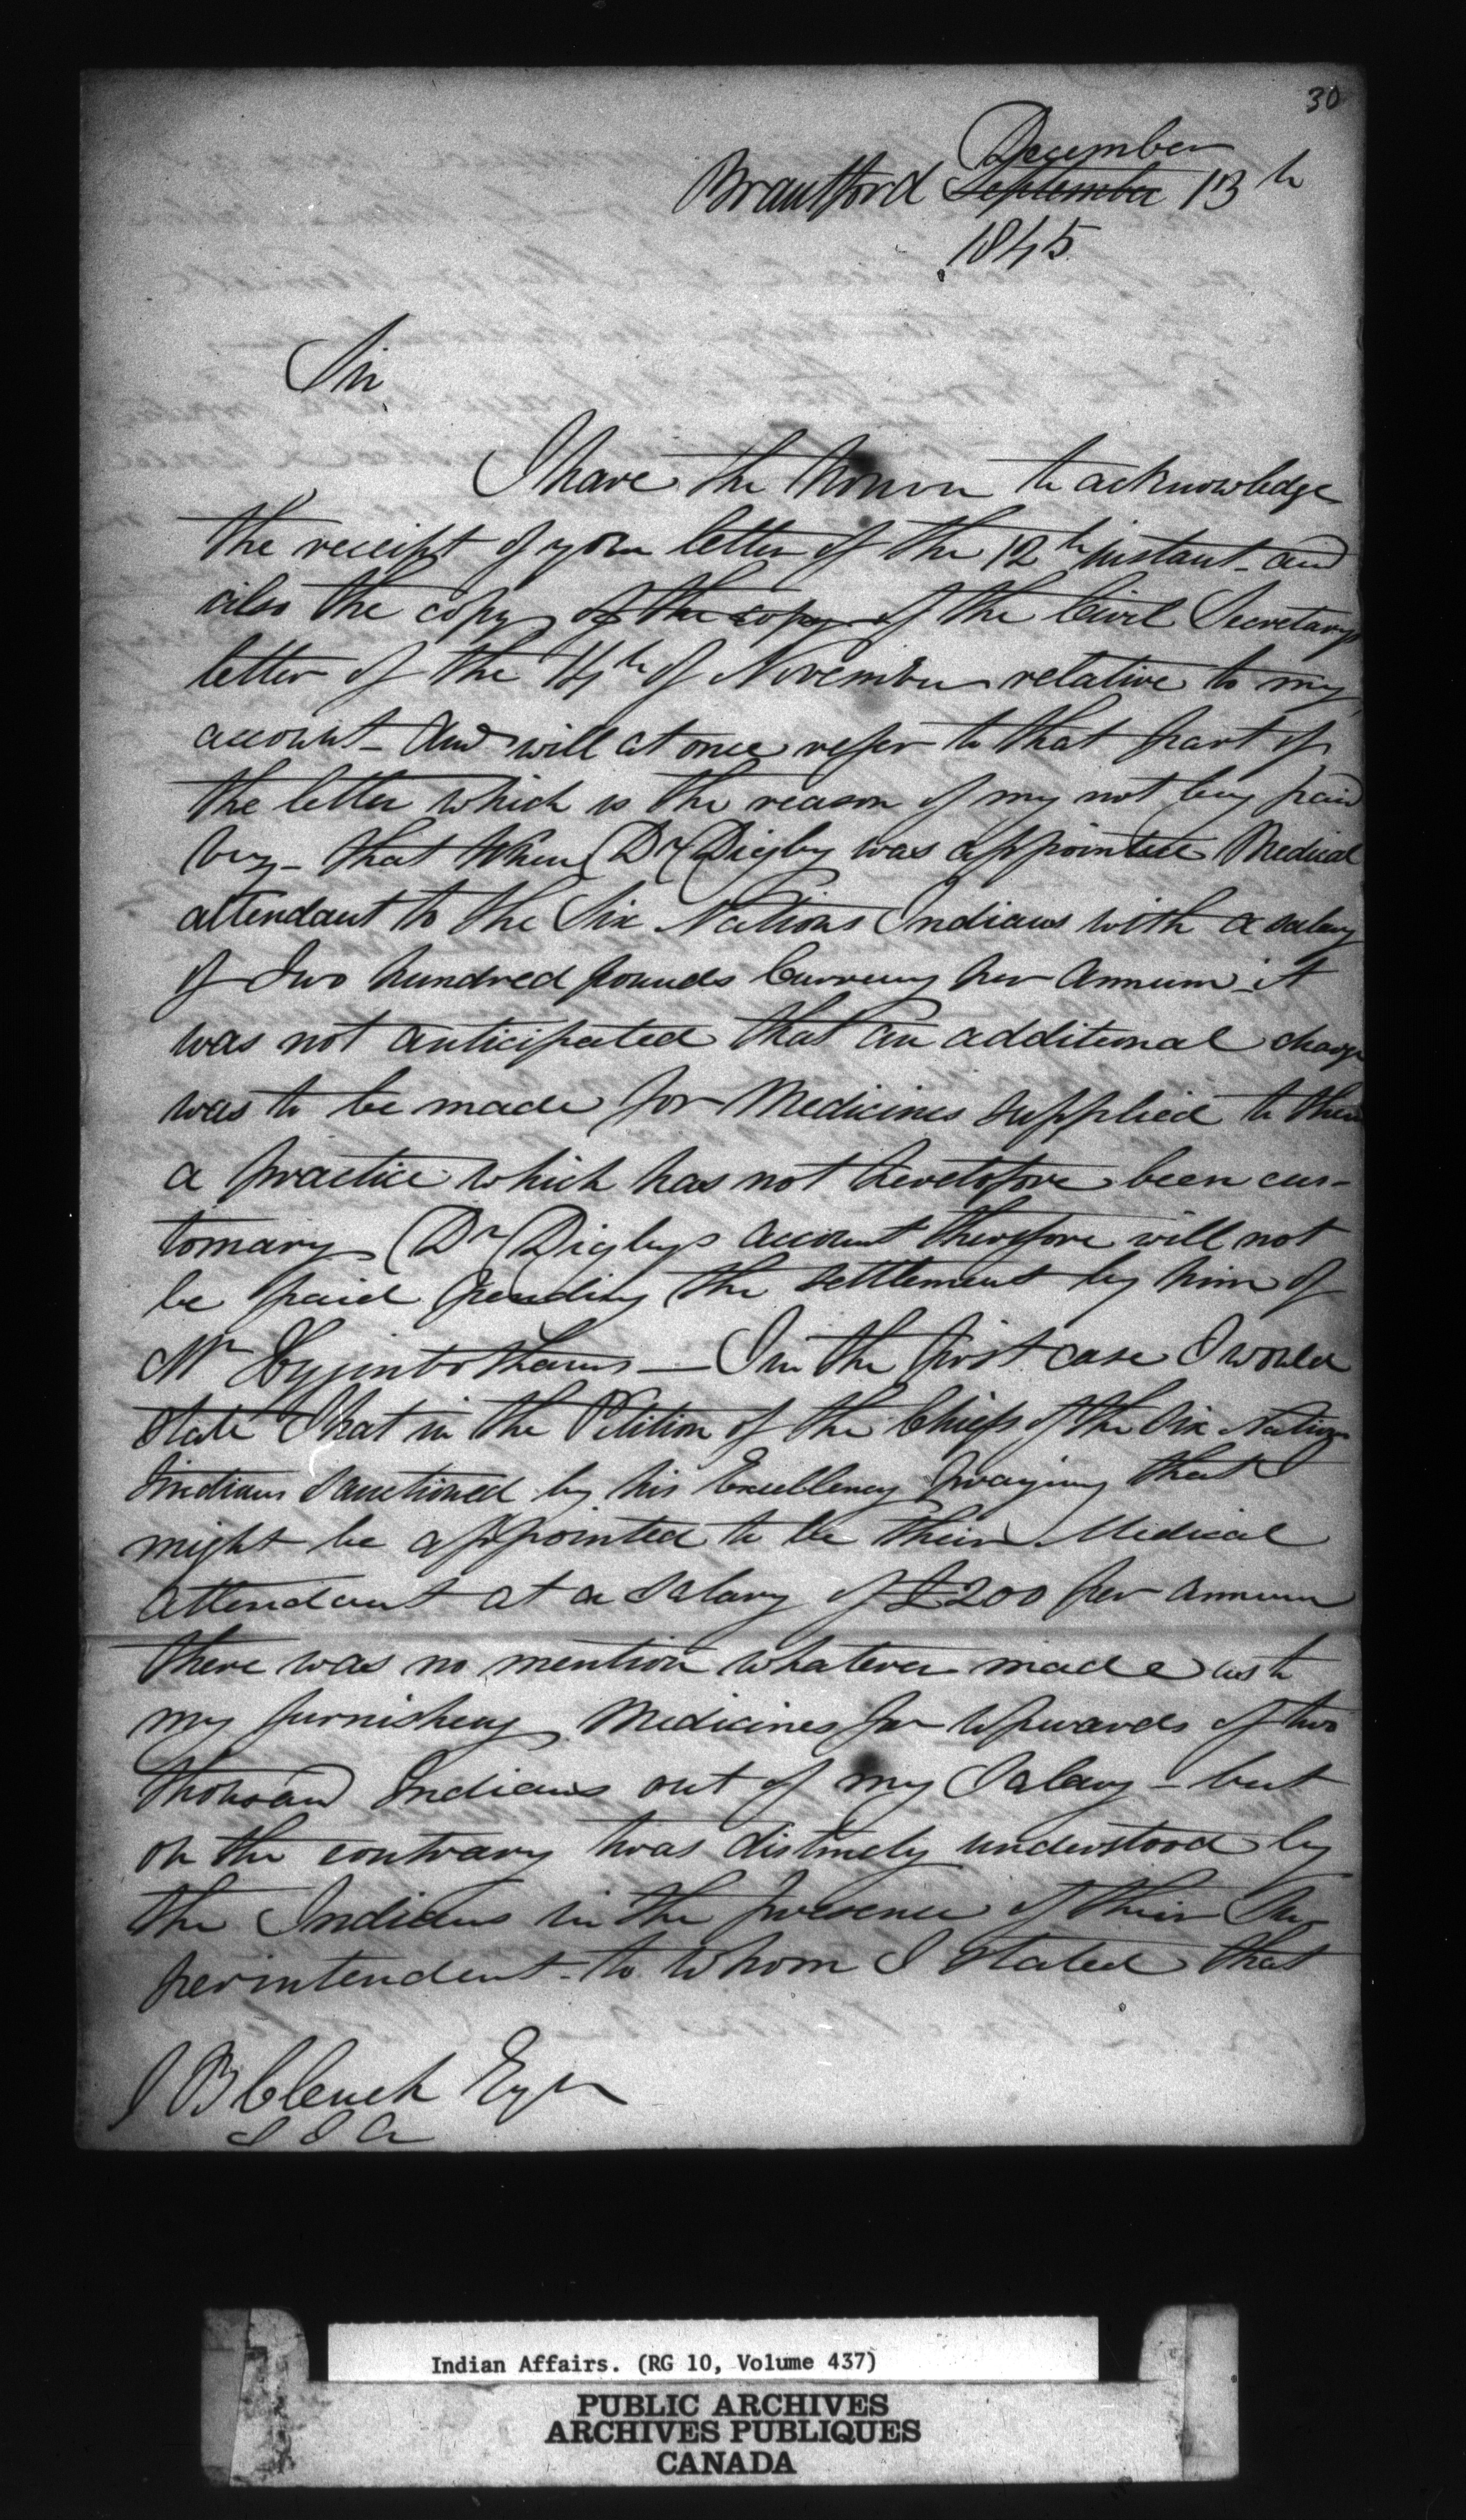 30
December
Brantford September 13th
1845
Sir
I have the honor to acknowledge
the receipt of your letter of the 12th instant - and
also the copy of the copy of the Civil Secretarys
letter of the 14th of November relative to my
account - and will at once refer to that part of
the letter which is the reason of my not being paid
viz - that when Dr Digby was appointed Medical
attendant to the Six Nations Indians with a salary
of Two hundred pounds Currency per Annum - it
was not anticipated that an additional charge
was to be made for Medicines supplied to them
a practice which has not heretofore been cus-
tomary Dr Digbys account therefore will not
be paid pending the settlement by him of
Mr Hyginbothams - In the first case I would
state that in the Petition of the Chiefs of the Six Nations
Indians sanctioned by his Excellency praying that I
might be appointed to be their Medical
attendant at a salary of £200 per annum
there was no mention whatever made as to
my furnishing Medicines for upwards of two
thousand Indians out of my Salary - but
on the contrary twas distinctly understood by
the Indians in the presence of their Su-
perintendent - to whom I stated that
J B Clench Esqr
S I A
Indian Affairs. (RG 10, Volume 437)
PUBLIC ARCHIVES
ARCHIVES PUBLIQUES
CANADA